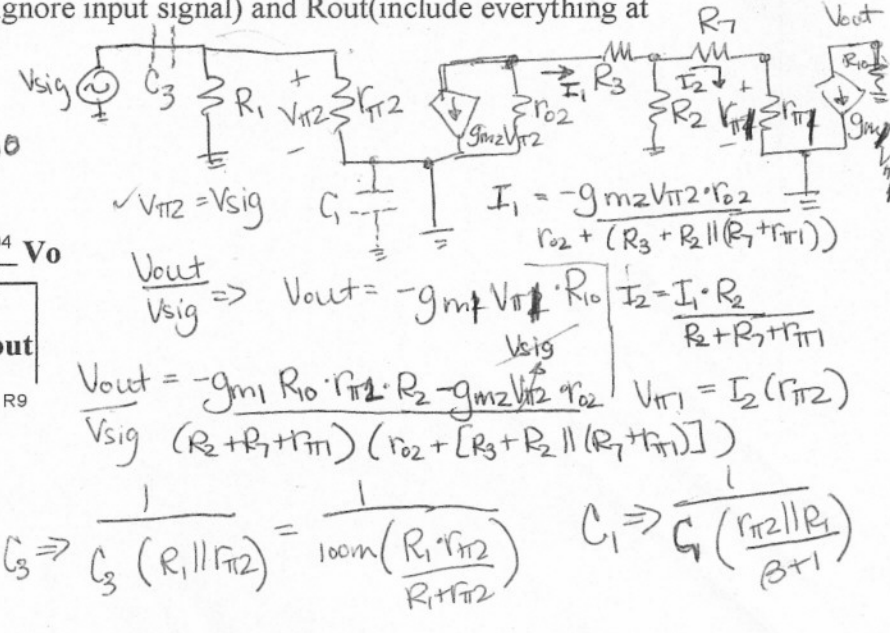 gnore input signal) and Rout(include everything at
Vsig
C3
R1
+
Vπ2
-
rπ2
gm2Vπ2
ro2
I1
R3
R2
R7
I2
+
Vπ1
-
rπ1
Vout
R10
C1
✓ Vπ2 = Vsig
I1 = -gm2Vπ2·ro2 / ro2 + (R3 + R2 || (R7 + rπ1))
Vo
out
R9
Vout / Vsig => Vout = -gm1 Vπ1 · R10
I2 = I1 · R2 / R2 + R7 + rπ1
Vsig
Vout / Vsig = -gm1 R10 · rπ1 · R2 - gm2 Vπ2 · ro2 / (R2 + R7 + rπ1) (ro2 + [R3 + R2 || (R7 + rπ1)])
Vπ1 = I2 (rπ2)
C3 => 1 / C3 (R1 || rπ2) = 1 / 100m (R1 · rπ2 / R1 + rπ2)
C1 => 1 / C1 (rπ2 || R1 / β+1)